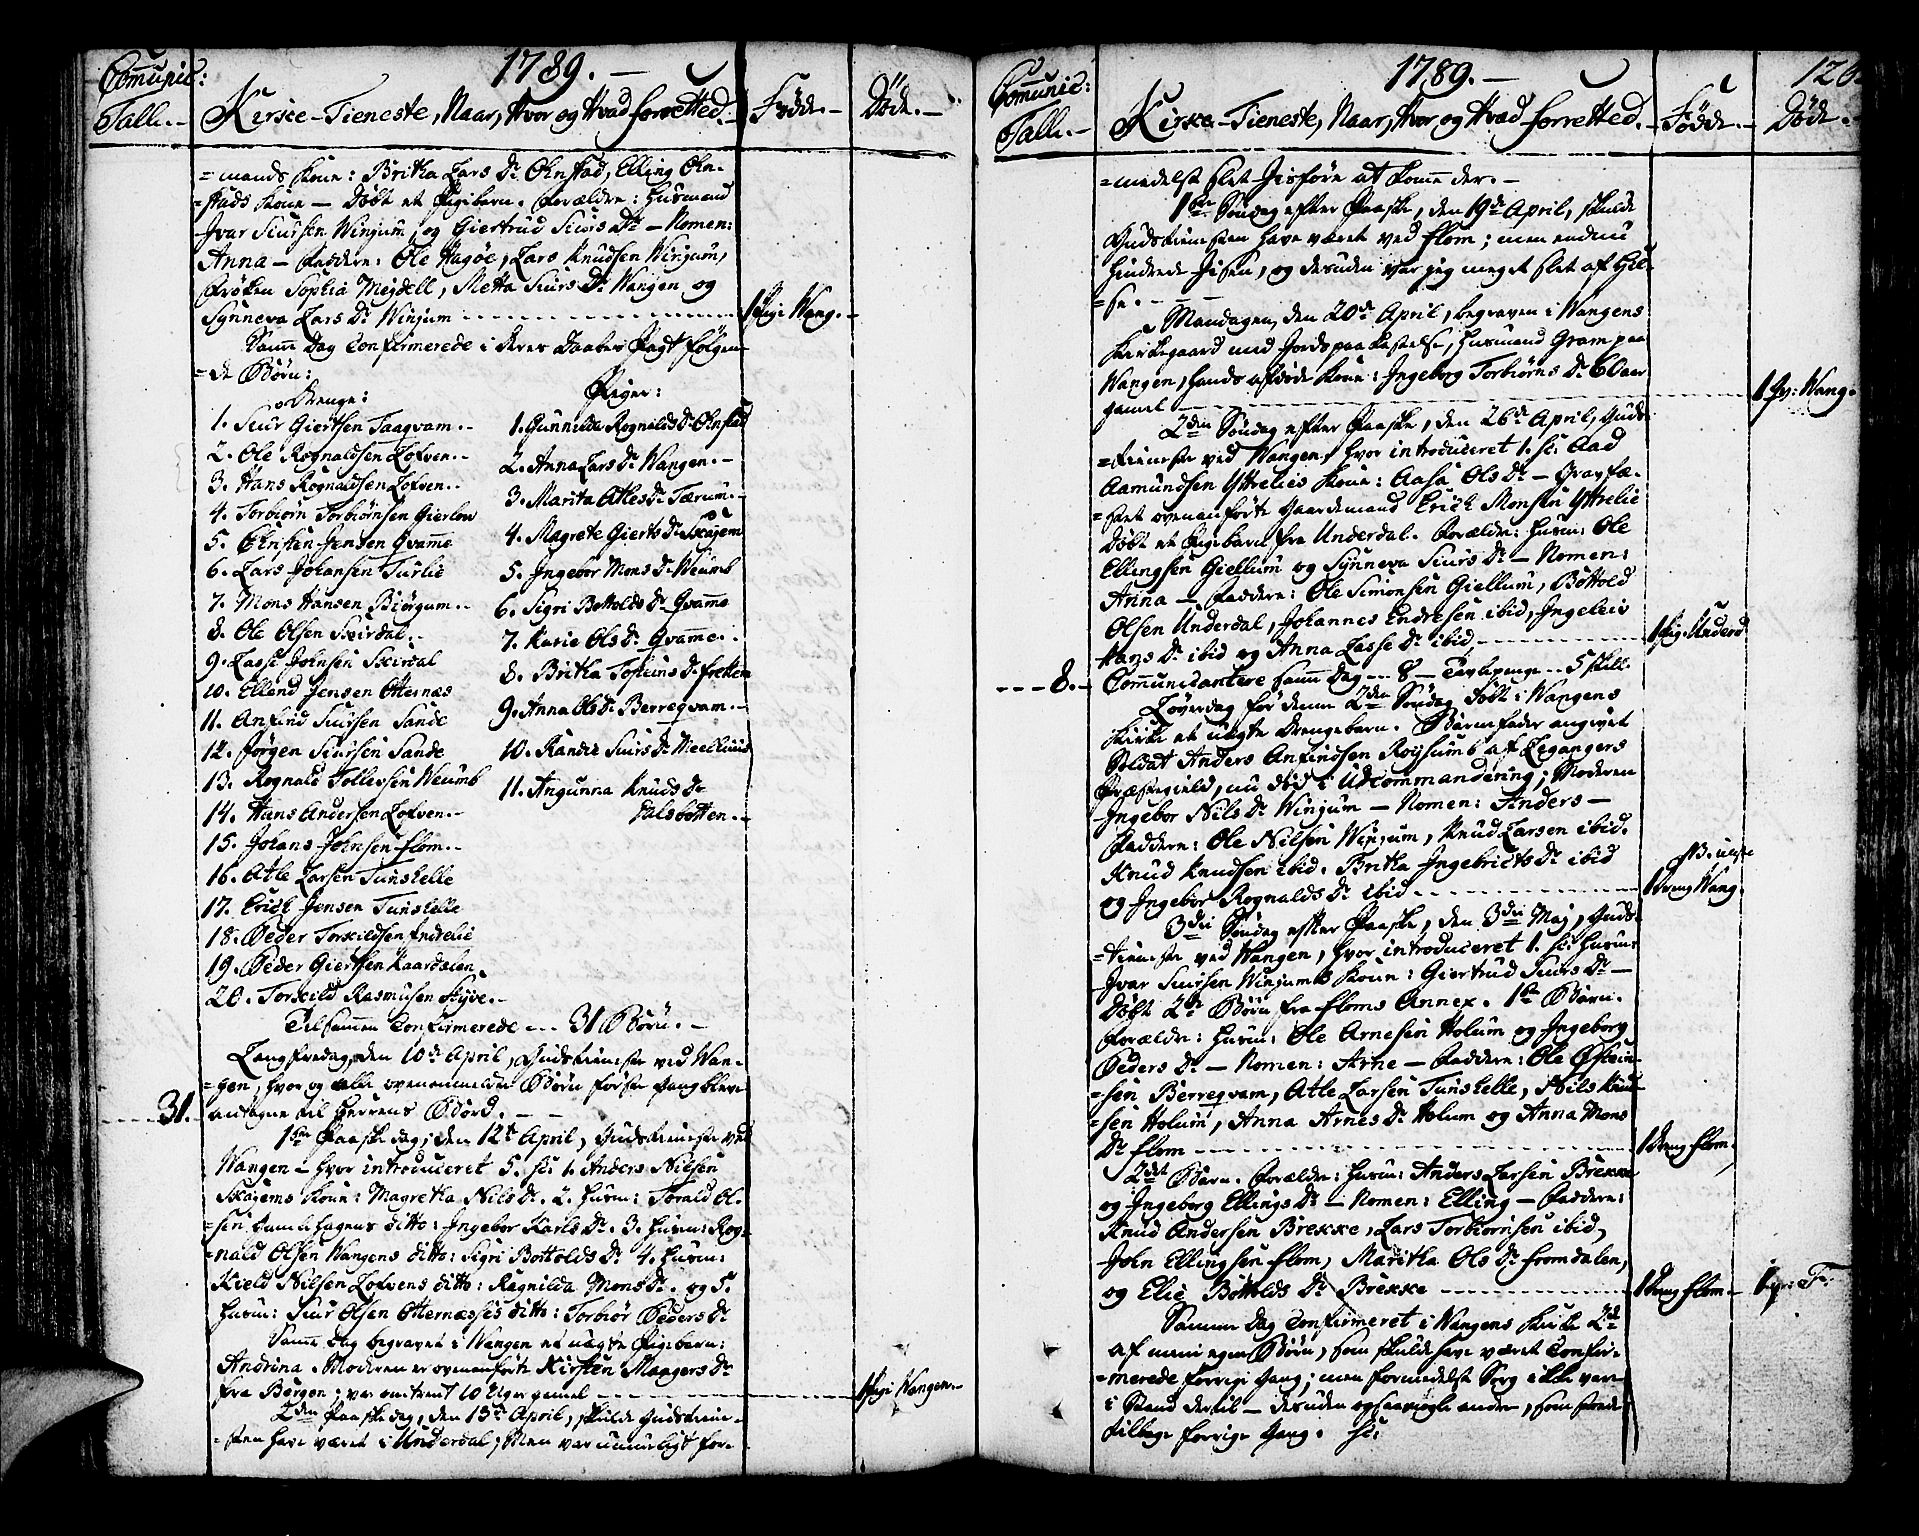 1789.
Comunic:
Tall.
Kirke-Tieneste, Naar, Hvor og Hvad forretted.
Fødde.
Døde.
=mands Kone: Britha Lars Dr Ohnstad, Elling Ohn-
=stads Kone — Døbt et Pigebarn. Forældre: Husmand
Ivar Siursen Winjum, og Giertrud Siurs Dr — Nomen:
Anna — Faddere: Ole Hagøe, Lars Knudsen Winjum,
Frøken Sophia Mejdell, Metta Siurs Dr Wangen og
Synneva Lars Dr Winjum
1 Pig: Wang.
Samme Dag Confirmerede i deres Daabes Pagt følgen-
=de Børn:
Drenge:
Piger:
1. Siur Giertsen Taagvam.
2. Ole Rognaldsen Lofven.
3. Hans Rognaldsen Lofven.
4. Torbiørn Torbiørnsen Gierlow
5. Ohnsten Jensen Gvamme
6. Lars Johansen Turlie
7. Mons Hansen Biørgum.
8. Ole Olsen Skirdal.
9. Lasse Johnsen Skirdal
10. Ellend Jensen Otternæs
11. Anfind Siursen Sande
12. Jørgen Siursen Sande
13. Rognald Tollevsen Weumb
14. Hans Andersen Lofven.
15. Johans Johnsen Flom.
16. Atle Larsen Tunshelle
17. Erich Jensen Tunshelle
18. Peder Torkildsen Indrelie
19. Peder Giertsen Kaardalen
20. Torkild Rasmusen Styve.
1. Gunnilda Rognalds Dr Ohnstad
2. Anna Lars Dr Wangen.
3. Marita Atles Dr Tærum.
4. Magrete Gierts Dr Skajem
5. Ingebor Mons Dr Weumb
6. Sigri Bottolds Dr Gvamme
7. Karie Ols Dr Gvamme.
8. Britha Tosteins Dr Fretten
9. Anna Ols Dr Berreqvam.
10. Randie Siurs Dr
11. Angunna Knuds Dr
Halsbotten.
Tilsammen Confirmerede --- 31 Børn.
Langfredag, den 10de April, Gudstieneste ved Wan-
=gen, hvor og alle ovenommeldte Børn første Gang bleve
antagne til Herrens Bord.
31.
1ste Paaskedag, den 12te April, Gudstieneste ved
Wangen — hvor introduceret 5. sc: 1. Anders Nilsen
Skajems Kone: Magretha Nils Dr. 2. Husm: Torald Ol-
=sen Gamlehagens ditto: Ingebor Karls Dr. 3. Husm: Rog-
=nald Olsen Wangens ditto: Sigri Bottolds Dr 4. Husm:
Kield Nilsen Lofvens ditto: Ragnilda Mons Dr. og 5.
Husm: Siur Olsen Otternæsses ditto: Torbiør Peders Dr
Samme Dag begravet i Wangen et uægte Pigebarn:
Andrina. Moderen er ovenanførte Kirsten Maagers Dr
fra Bergen; var omtrent 10 Uger gamel
1 Pigi Wangen.
2den Paaskedag, den 13de April, skulde Gudstiene-
=sten have været i Underdal; Men var umueligt for-
1789.
126.
Comunic:
Tall.
Kirke-Tieneste, Naar, Hvor og Hvad forretted.
Fødde.
Døde.
=medelst slet Jisføre at komme der.
1ste Søndag efter Paaske, den 19de April, skulde
Gudstienesten have været ved Flom; men endnu
hindrede Jisen, og desuden var jeg meget slet af Hel-
=se.
Mandagen, den 20de April, begraven i Wangens
Kirkegaard med Jordspaakastelse, Husmand Gram paa
Wangen, hands afdøde Kone: Ingeborg Torbiørns Dr 60 aar
gamel
1 Gv: Wang.
2den Søndag efter Paaske, den 26de April, Guds-
=tieneste ved Wangen, hvor introduceret 1. sc: Aad
Aamundsen Yttrelies Kone: Aasa Ols Dr — Gravfæ-
=stet ovenanførte Gaardemand Erich Monsen Yttrelie
Døbt et Pigebarn fra Underdal. Forældre: Husm: Ole
Ellingsen Giellum og Synneva Siurs Dr — Nomen:
Anna — Faddere: Ole Simonsen Giellum, Bottold
Olsen Underdal, Johannes Endresen ibid, Ingeleiv
Hans Dr ibid og Anna Lasse Dr ibid
1 Pig. Underd
8.
Communicantere samme Dag --- 8 — Tavlepenge --- 5 skill.
Løverdag før denne 2den Søndag døbt i Wangens
Kirke et uægte Drengebarn. Barnefader angivet
Soldat Anders Anfindsen Roysumb af Legangers
Præstegield, nu død i Udcommandering; Moderen
Ingebor Nils Dr Winjum — Nomen: Anders —
Faddere: Ole Nilsen Winjum, Knud Larsen ibid.
Knud Knudsen ibid. Britha Ingebricts Dr ibid
og Ingebor Rognalds Dr ibid
NB. uægte
1 Dreng Wang.
3die Søndag efter Paaske, den 3die Maj, Guds-
=tieneste ved Wangen, hvor introduceret 1. sc: Husm:
Ivar Siursen Winjums Kone: Giertrud Siurs Dr —
Døbt 2de Børn fra Floms Annex. 1ste Barn.
Forældre: Husm: Ole Arnesen Holum og Ingeborg
Peders Dr — Nomen: Arne — Faddere: Ole Østein-
=sen Berreqvam, Atle Larsen Tunshelle, Nils Knud-
=sen Holum, Anna Arnes Dr Holum og Anna Mons
Dr Flom
1 Dreng Flom.
2det Barn. Forældre: Husm: Anders Larsen Brekke
og Ingeborg Ellings Dr — Nomen: Elling — Faddere:
Knud Andersen Brekke, Lars Torbiørnsen ibid,
John Ellingsen Flom, Maritha Ols Dr Fromdalen,
og Elie Bottolds Dr Brekke
1 Dreng Flom
Samme Dag Confirmeret i Wangens Kirke 2de
af mine egne Børn, som skulde have været Confir-
=merede forrige Gang; men formedelst Sorg ikke vare
i Stand dertil — desuden ogsaa nogle andre, som stode
tilbage forrige Gang. sc: